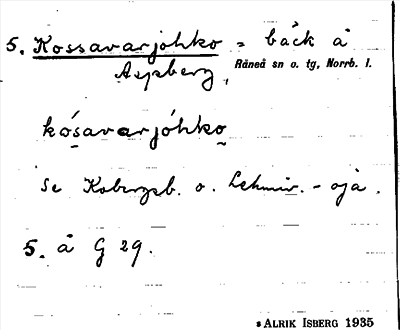 5. Kossavarjohko = bäck å
Aspberg, Råneå sn o. tg, Norrb. l.
kósavarjóhko
Se Kobergsb. o. Lehmir. - oja.
5. å G 29.
s ALRIK ISBERG 1935